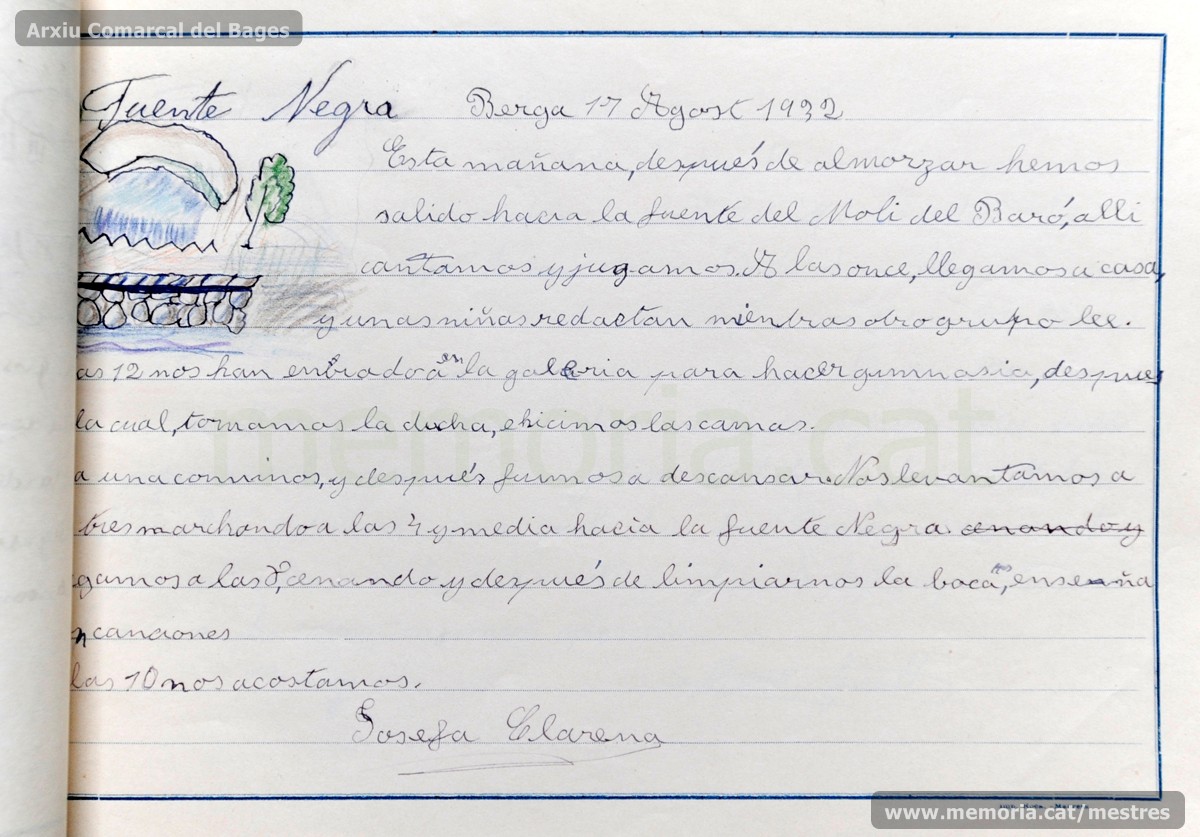 Arxiu Comarcal del Bages
Fuente Negra Berga 17 Agost 1932
Esta mañana, después de almorzar hemos
salido hacia la fuente del Moli del Baró, alli
cantamos y jugamos. A las once, llegamos a casa,
y unas niñas redactan mientras otro grupo lee.
as 12 nos han entrado a en la galeria para hacer gumnasia, despues
la cual, tomamos la ducha, e hicimos las camas.
a una comimos, y después fuimos a descansar. Nos levantamos a
tres marchando a las 4 y media hacia la fuente Negra. cenando y
gamos a las 8, cenando y después de limpiarnos la boca, nos enseña
n canciones
las 10 nos acostamos.
Josefa Clarena
memoria.cat
www.memoria.cat/mestres